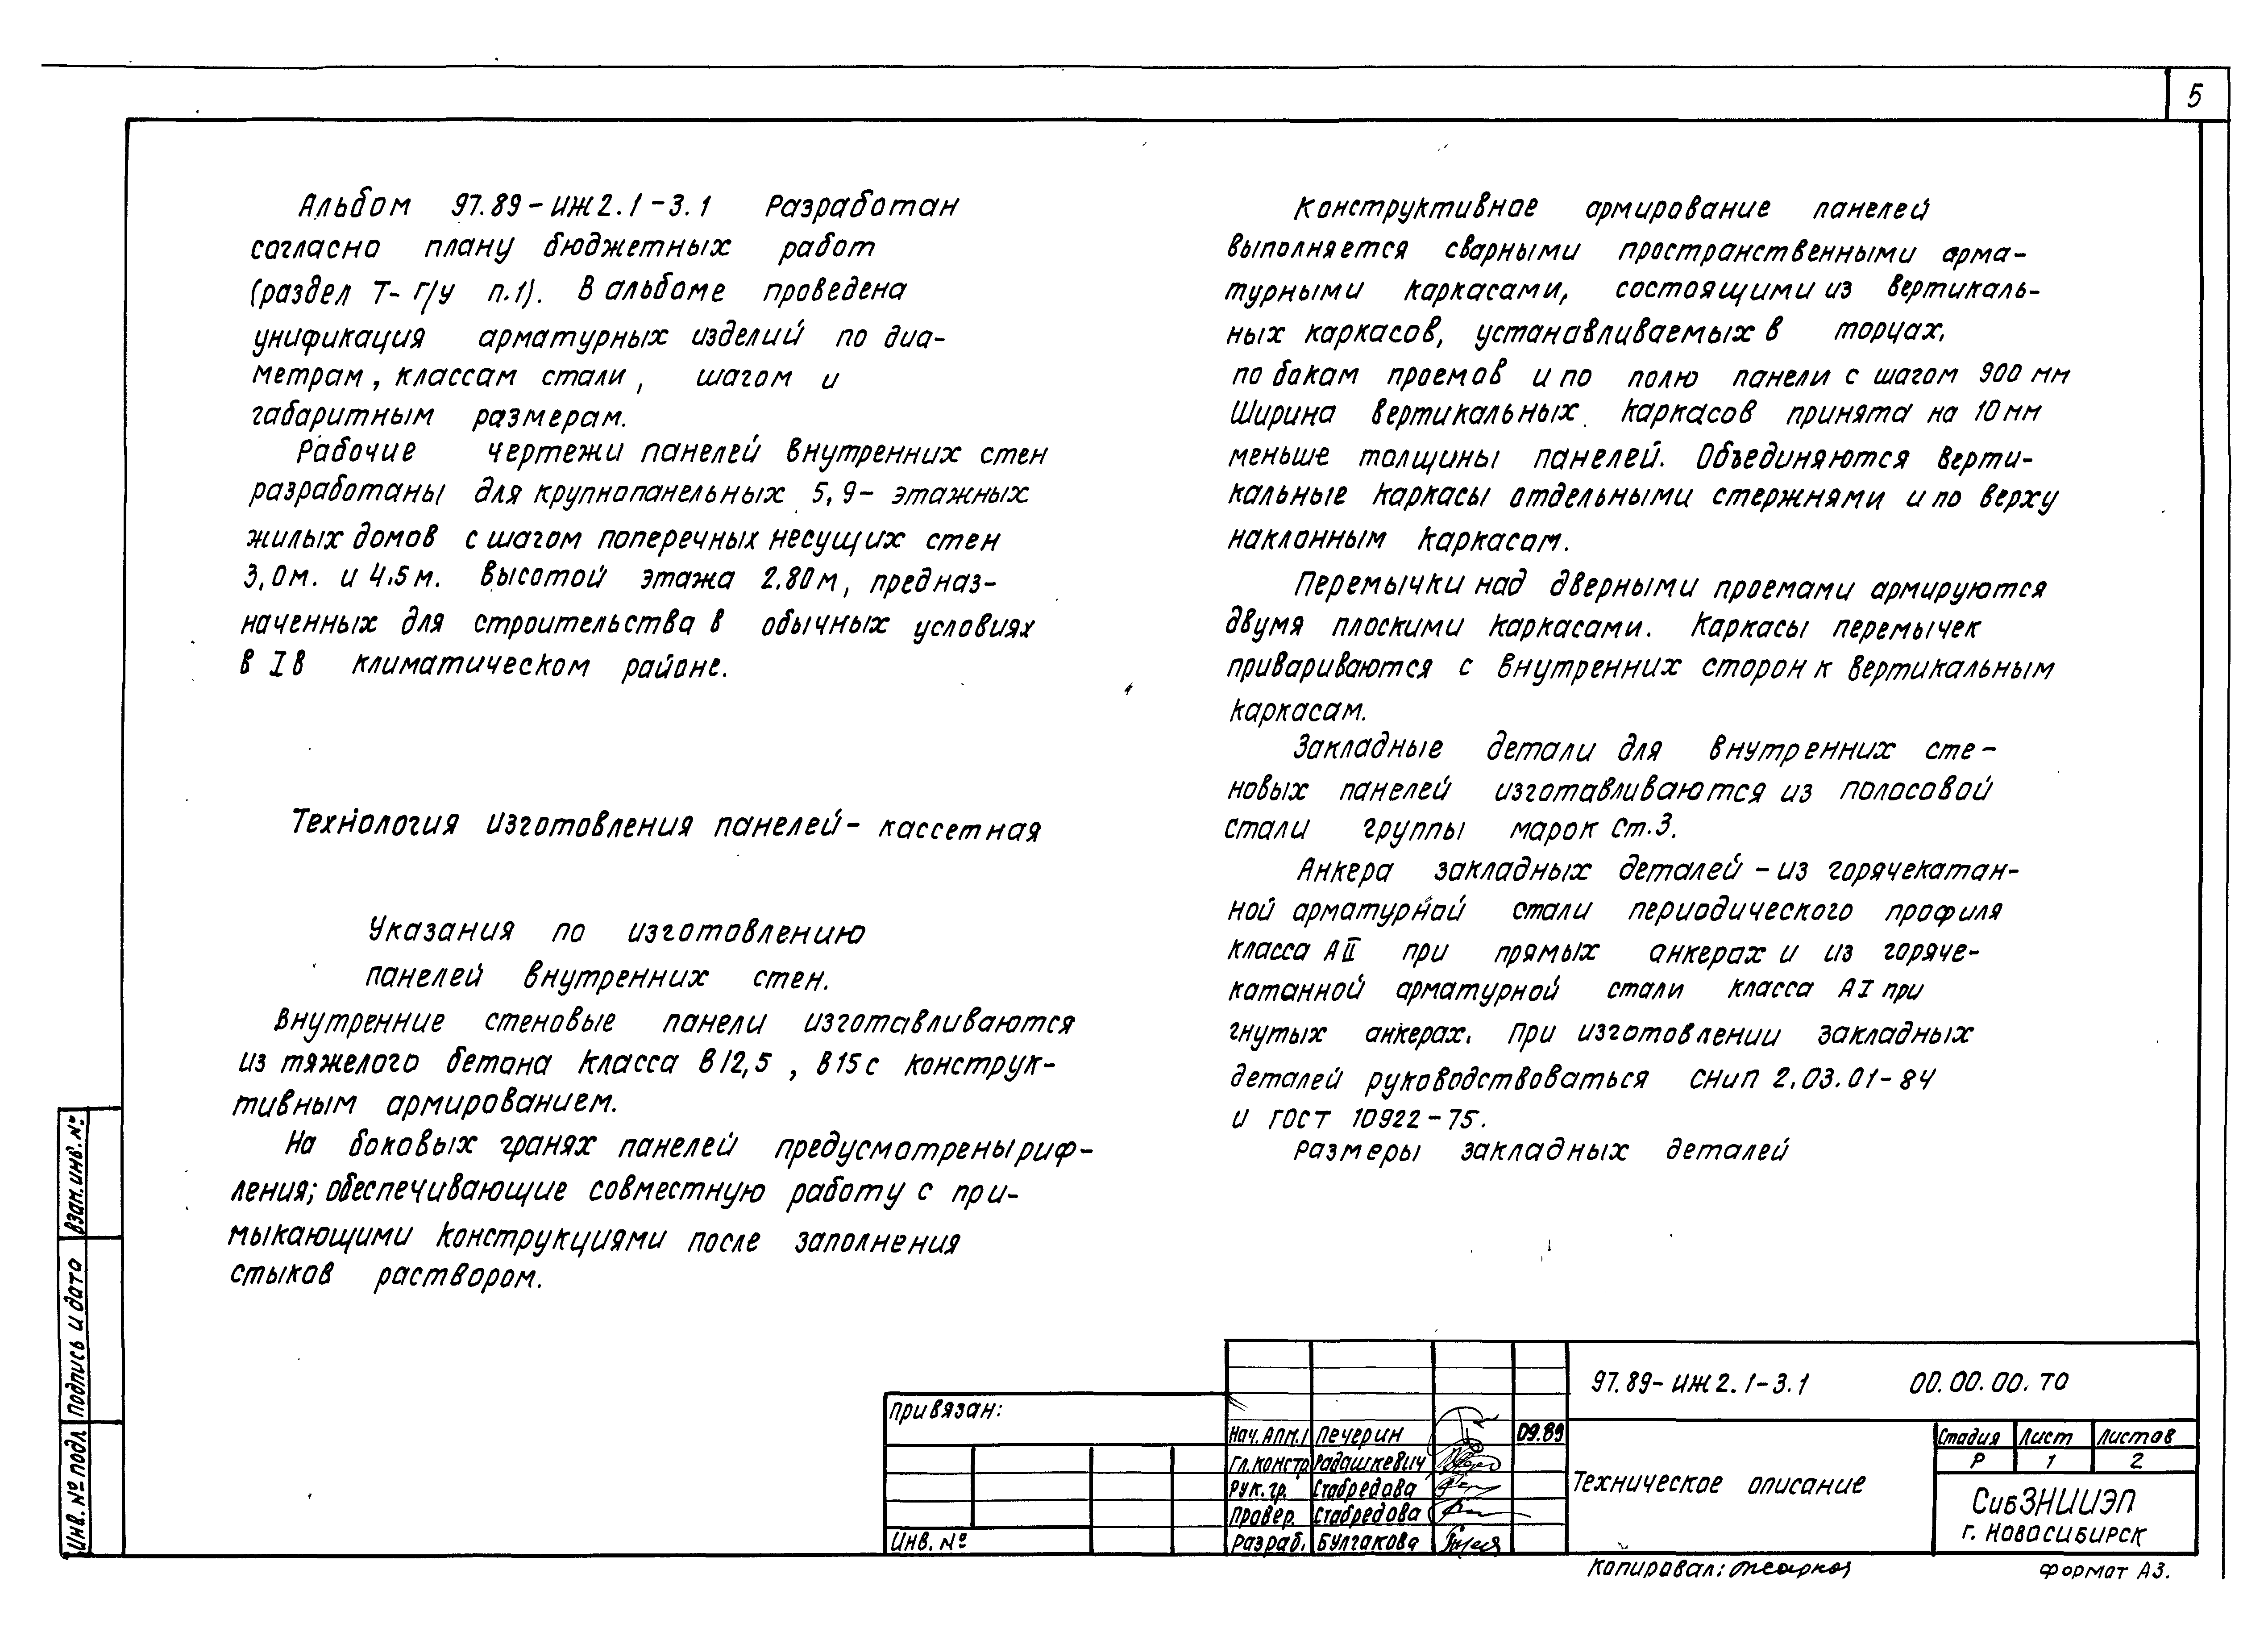 5
Альбом 97.89-ИЖ2.1-3.1 Разработан
согласно плану бюджетных работ
(раздел Т-Г/У п.1). В альбоме проведена
унификация арматурных изделий по диа-
метрам, классам стали, шагом и
габаритным размерам.
Рабочие чертежи панелей внутренних стен
разработаны для крупнопанельных 5,9-этажных
жилых домов с шагом поперечных несущих стен
3,0м. и 4.5м. высотой этажа 2.80м, предназ-
наченных для строительства в обычных условиях
в IВ климатическом районе.
Технология изготовления панелей-кассетная
Указания по изготовлению
панелей внутренних стен.
Внутренние стеновые панели изготавливаются
из тяжелого бетона класса В12,5, В15 с конструк-
тивным армированием.
На боковых гранях панелей предусмотрены риф-
ления; обеспечивающие совместную работу с при-
мыкающими конструкциями после заполнения
стыков раствором.
Конструктивное армирование панелей
выполняется сварными пространственными арма-
турными каркасами, состоящими из вертикаль-
ных каркасов, устанавливаемых в торцах,
по бокам проемов и по полю панели с шагом 900 мм
Ширина вертикальных каркасов принята на 10мм
меньше толщины панелей. Объединяются верти-
кальные каркасы отдельными стержнями и по верху
наклонным каркасом.
Перемычки над дверными проемами армируются
двумя плоскими каркасами. Каркасы перемычек
привариваются с внутренних сторон к вертикальным
каркасам.
Закладные детали для внутренних сте-
новых панелей изготавливаются из полосовой
стали группы марок Ст.3.
Анкера закладных деталей - из горячекатан-
ной арматурной стали периодического профиля
класса АII при прямых анкерах и из горяче-
катанной арматурной стали класса АI при
гнутых анкерах. При изготовлении закладных
деталей руководствоваться СНиП 2.03.01-84
и ГОСТ 10922-75.
Размеры закладных деталей
Взам. инв. №
Подпись и дата
Инв. № подл
Привязан:
Инв. №
97.89-ИЖ2.1-3.1 00.00.00.ТО
Нач. АПМ.1 Печерин 09.89
Гл. констр. Радашкевич
Рук. гр. Стабредова
Провер. Стабредова
Разраб. Булгакова
Техническое описание
Стадия Лист Листов
Р 1 2
СибЗНИИЭП
г. Новосибирск
Копировал:
Формат А3.